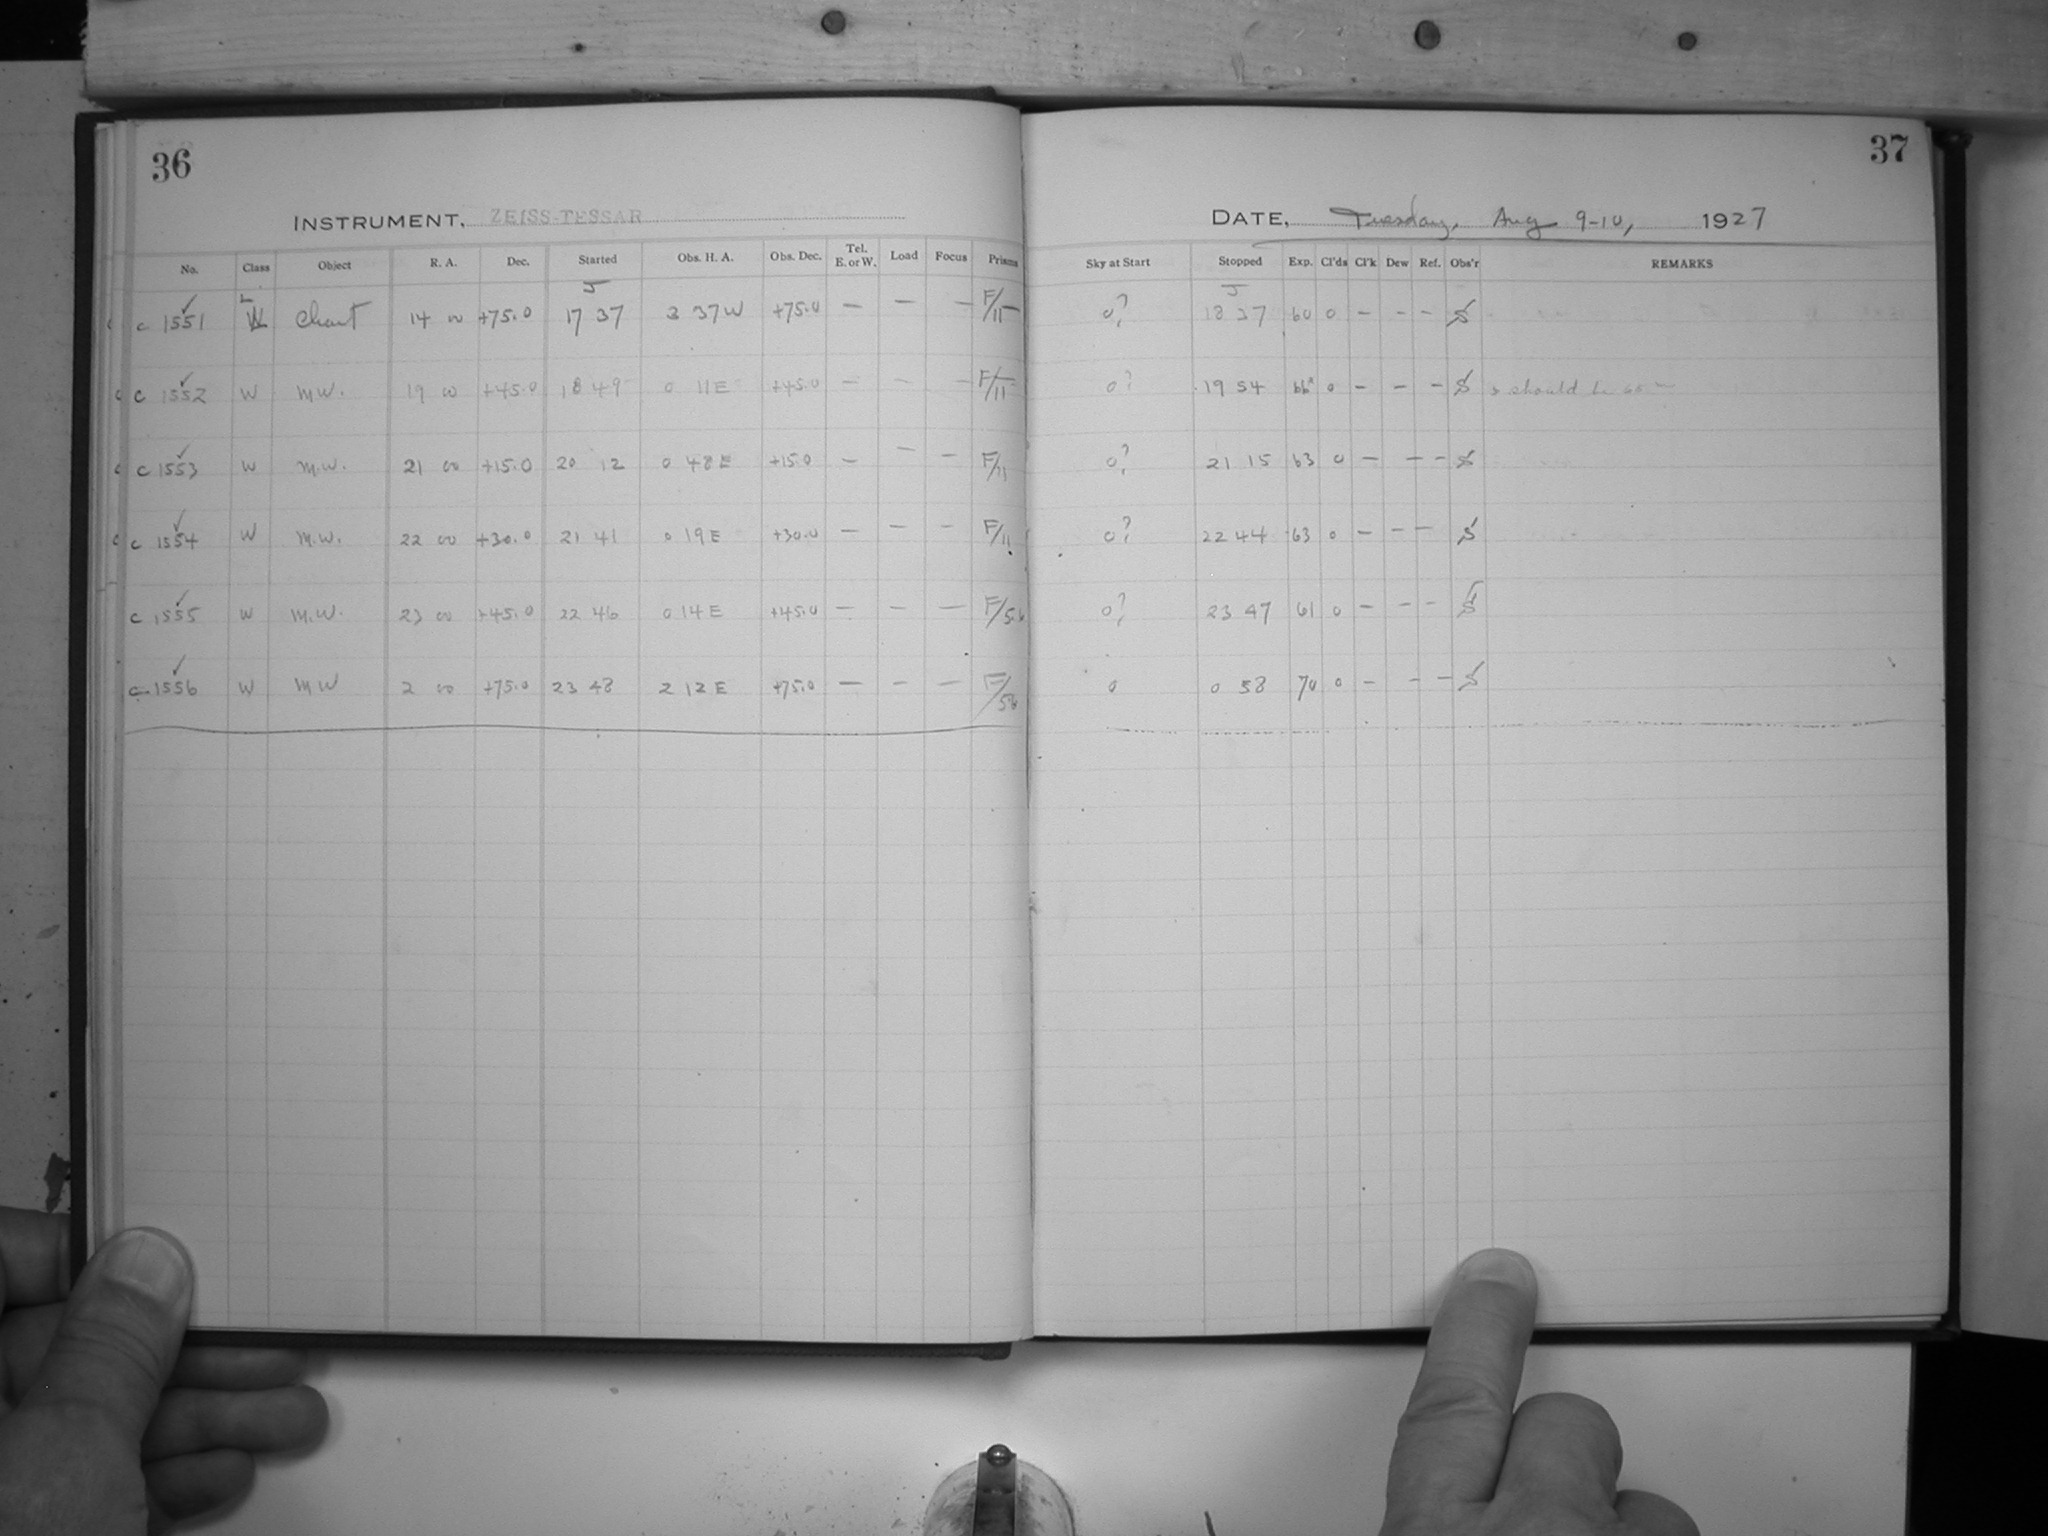 36
37
INSTRUMENT, ZEISS-TESSAR
DATE, Tuesday, Aug 9-10, 1927
No. Class Object R. A. Dec. Started Obs. H. A. Obs. Dec. Tel. E. or W. Load Focus Prisms Sky at Start Stopped Exp. Cl'ds Cl'k Dew Ref. Obs'r REMARKS
c 1551 L W Chart 14 00 +75.0 17 37 3 37 W +75.0 — — — F/11 0? 18 37 60 0 — — — S
c 1552 W M.W. 19 00 +45.0 18 49 0 11 E +45.0 — — — F/11 0? 19 54 66* 0 — — — S should be 65
c 1553 W M.W. 21 00 +15.0 20 12 0 48 E +15.0 — — — F/11 0? 21 15 63 0 — — — S
c 1554 W M.W. 22 00 +30.0 21 41 0 19 E +30.0 — — — F/11 0? 22 44 63 0 — — — S
c 1555 W M.W. 23 00 +45.0 22 46 0 14 E +45.0 — — — F/5.6 0? 23 47 61 0 — — — S
c 1556 W MW 2 00 +75.0 23 48 2 12 E +75.0 — — — F/5.6 0 0 58 70 0 — — — S